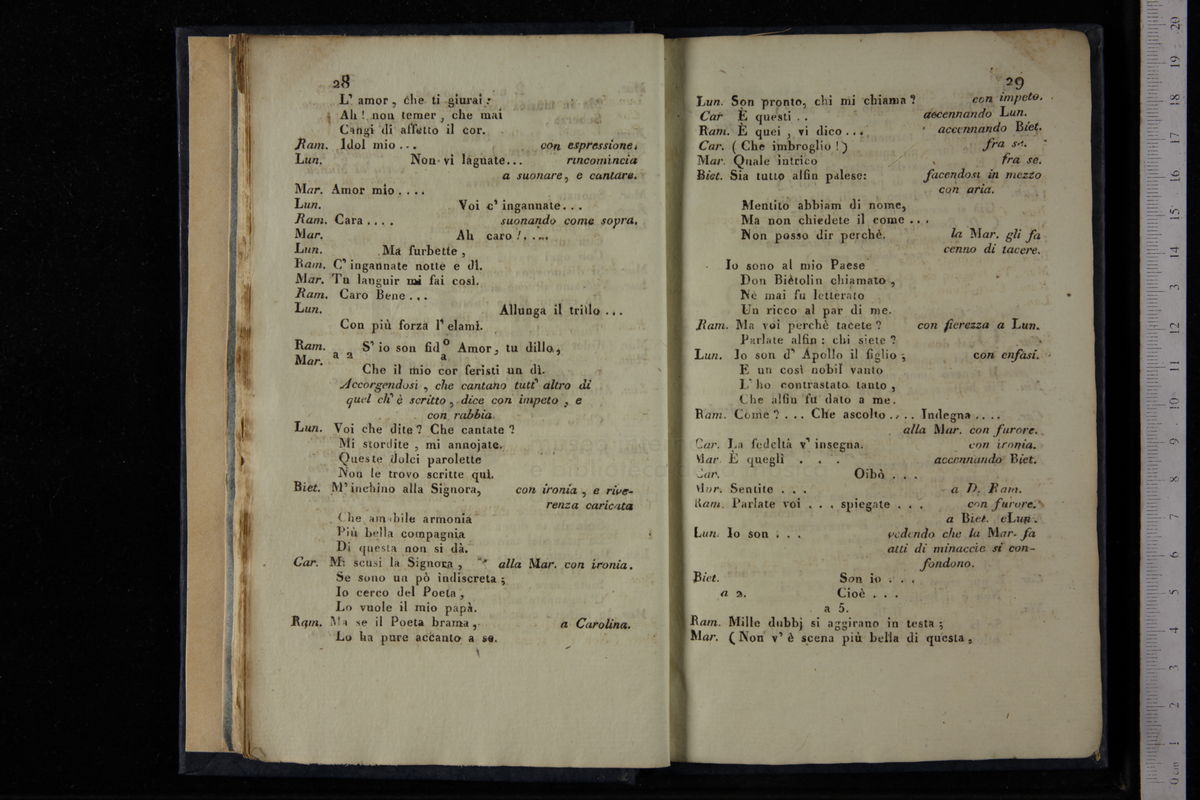 28
L' amor, che ti giurai:
Ah! non temer, che mai
Cangi di affetto il cor.
Ram. Idol mio... con espressione.
Lun. Non vi lagnate... rincomincia
a suonare, e cantare.
Mar. Amor mio....
Lun. Voi c' ingannate...
Ram. Cara.... suonando come sopra.
Mar. Ah caro!....
Lun. Ma furbette,
Ram. C' ingannate notte e dì.
Mar. Tu languir mi fai così.
Ram. Caro Bene...
Lun. Allunga il trillo...
Con più forza l' elamì.
Ram. S' io son fido Amor, tu dillo,
Mar. a 2 a
Che il mio cor feristi un dì.
Accorgendosi, che cantano tutt' altro di
quel ch' è scritto, dice con impeto, e
con rabbia.
Lun. Voi che dite? Che cantate?
Mi stordite, mi annojate.
Queste dolci parolette
Non le trovo scritte quì.
Biet. M' inchino alla Signora, con ironia, e rive-
renza caricata
Che amabile armonia
Più bella compagnia
Di questa non si dà.
Car. Mi scusi la Signora, alla Mar. con ironia.
Se sono un pò indiscreta;
Io cerco del Poeta,
Lo vuole il mio papà.
Ram. Ma se il Poeta brama, a Carolina.
Lo ha pure accanto a se.
29
Lun. Son pronto, chi mi chiama? con impeto.
Car È questi.. accennando Lun.
Ram. È quei, vi dico... accennando Biet.
Car. (Che imbroglio!) fra se.
Mar. Quale intrico fra se.
Biet. Sia tutto alfin palese: facendosi in mezzo
con aria.
Mentito abbiam di nome,
Ma non chiedete il come...
Non posso dir perchè. la Mar. gli fa
cenno di tacere.
Io sono al mio Paese
Don Biètolin chiamato,
Nè mai fu letterato
Un ricco al par di me.
Ram. Ma voi perchè tacete? con fierezza a Lun.
Parlate alfin: chi siete?
Lun. Io son d' Apollo il figlio; con enfasi.
E un così nobil vanto
L' ho contrastato tanto,
Che alfin fu dato a me.
Ram. Come?... Che ascolto.... Indegna....
alla Mar. con furore.
Car. La fedeltà v' insegna. con ironia.
Mar. È quegli... accennando Biet.
Car. Oibò...
Mar. Sentite... a D. Ram.
Ram. Parlate voi... spiegate... con furore.
a Biet. e Lun.
Lun. Io son... vedendo che la Mar. fa
atti di minaccie si con-
fondono.
Biet. Son io...
a 2. Cioè...
a 5.
Ram. Mille dubbj si aggirano in testa;
Mar. (Non v' è scena più bella di questa,